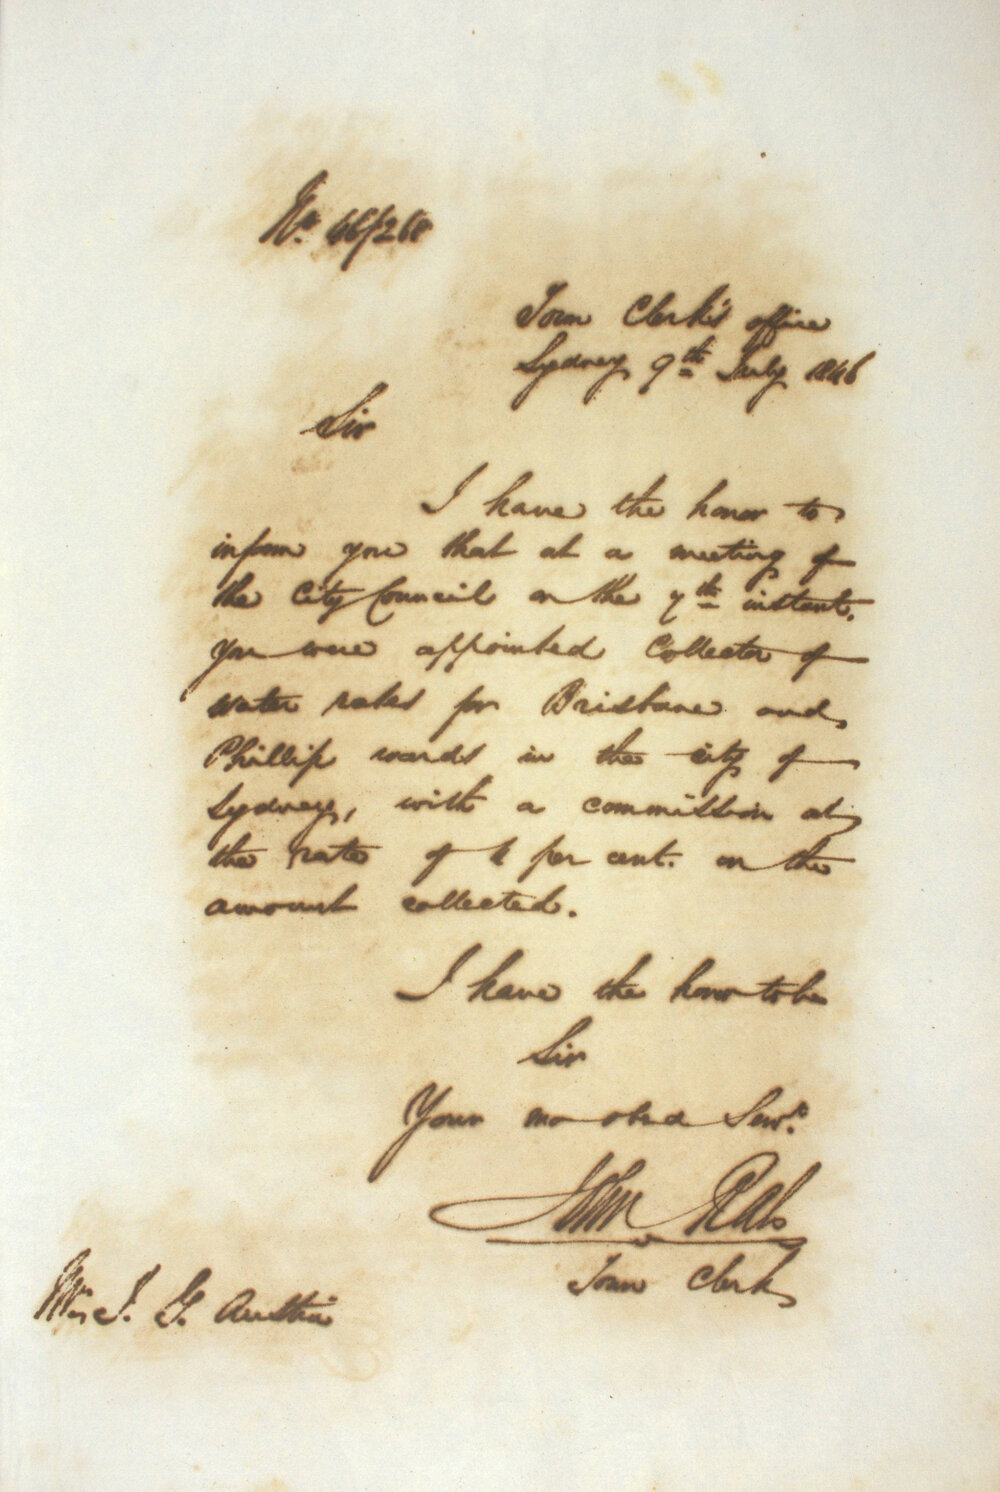 No. 46/268
Town Clerk's office
Sydney 9th July 1846
Sir
I have the honor to
inform you that at a meeting of
the City Council on the 7th instant.
you were appointed Collector of
water rates for Brisbane and
Phillip wards in the city of
Sydney, with a commission at
the rate of 4 per cent. on the
amount collected.
I have the honor to be
Sir
Your mo obed Servt.
John Rae
Town Clerk
J. G. Austin